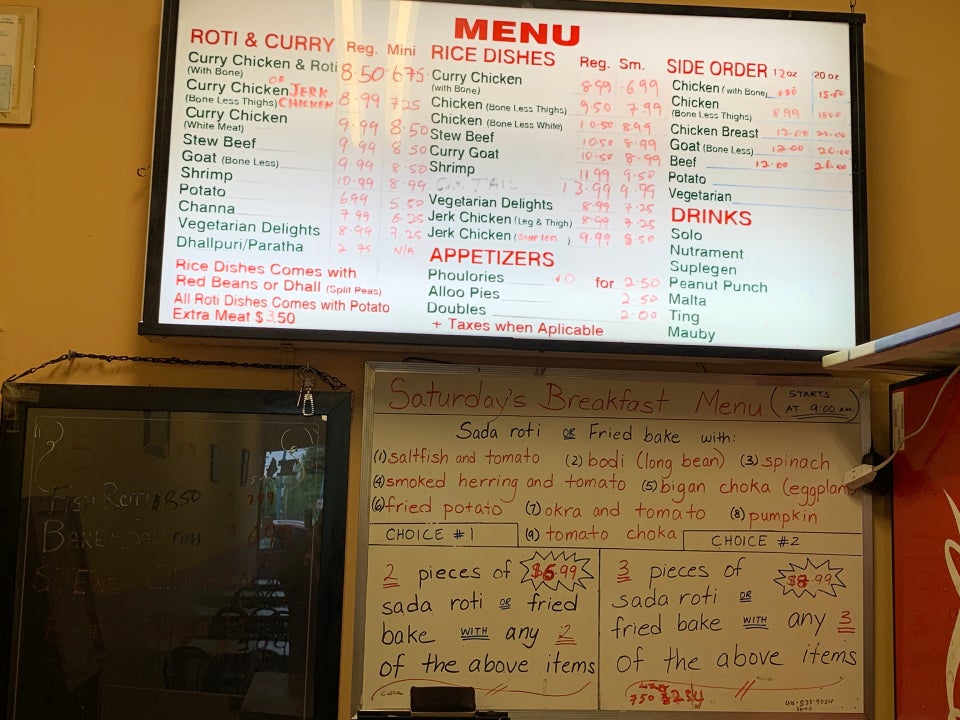 MENU
ROTI & CURRY Reg. Mini
Curry Chicken & Roti 8.50 6.75
(With Bone)
Curry Chicken OR JERK CHICKEN 8.99 7.25
(Bone Less Thighs)
Curry Chicken 9.99 8.50
(White Meat)
Stew Beef 9.99 8.50
Goat (Bone Less) 9.99 8.50
Shrimp 10.99 8.99
Potato 6.99 5.50
Channa 7.99 6.25
Vegetarian Delights 8.99 7.25
Dhallpuri/Paratha 2.75 N/A
Rice Dishes Comes with
Red Beans or Dhall (Split Peas)
All Roti Dishes Comes with Potato
Extra Meat $3.50
RICE DISHES Reg. Sm.
Curry Chicken 8.99 6.99
(with Bone)
Chicken (Bone Less Thighs) 9.50 7.99
Chicken (Bone Less White) 10.50 8.99
Stew Beef 10.50 8.99
Curry Goat 10.50 8.99
Shrimp 11.99 9.50
13.99 9.99
Vegetarian Delights 8.99 7.25
Jerk Chicken (Leg & Thigh) 8.99 7.25
Jerk Chicken (Bone less) 9.99 8.50
APPETIZERS
Phoulories 10 for 2.50
Alloo Pies 2.50
Doubles 2.00
+ Taxes when Aplicable
SIDE ORDER 12oz 20oz
Chicken (with Bone)
Chicken 8.99
(Bone Less Thighs)
Chicken Breast 12.00 20.00
Goat (Bone Less) 12.00 20.00
Beef 12.00 20.00
Potato
Vegetarian
DRINKS
Solo
Nutrament
Suplegen
Peanut Punch
Malta
Ting
Mauby
FISH ROTI 8.50
BAKE
Saturday's Breakfast Menu (STARTS AT 9:00 AM.)
Sada roti OR Fried bake with:
(1) saltfish and tomato (2) bodi (long bean) (3) spinach
(4) smoked herring and tomato (5) bigan choka (eggplant
(6) fried potato (7) okra and tomato (8) pumpkin
(9) tomato choka
CHOICE #1
2 pieces of $6.99
sada roti OR fried
bake WITH any 2
of the above items
CHOICE #2
3 pieces of $8.99
sada roti OR
fried bake WITH any 3
of the above items